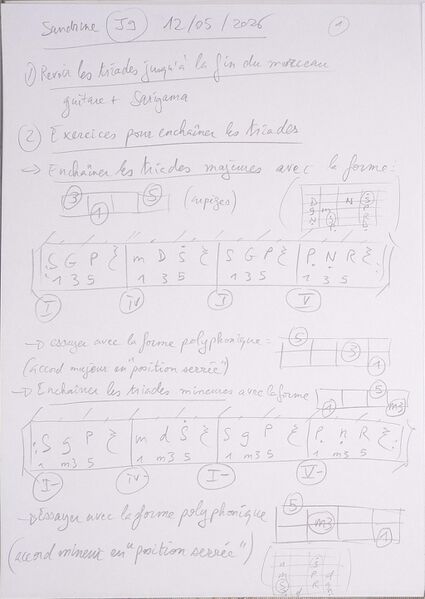 Sandrine J9 12/05/2026 1
1) Revoir les triades jusqu'à la fin du morceau
guitare + Sarigama
2) Exercices pour enchaîner les triades
→ Enchaîner les triades majeures avec la forme :
3 1 5 (arpèges)
S G P m D Ṡ S G P P N R
1 3 5 1 3 5 1 3 5 1 3 5
I IV I V
→ essayer avec la forme polyphonique :
5 3 1
(accord majeur en "position serrée")
→ Enchaîner les triades mineures avec la forme
1 5 m3
S g P m d Ṡ S g P P n R
1 m3 5 1 m3 5 1 m3 5 1 m3 5
I- IV- I- V-
→ Essayer avec la forme polyphonique
5 m3 1
(accord mineur en "position serrée")